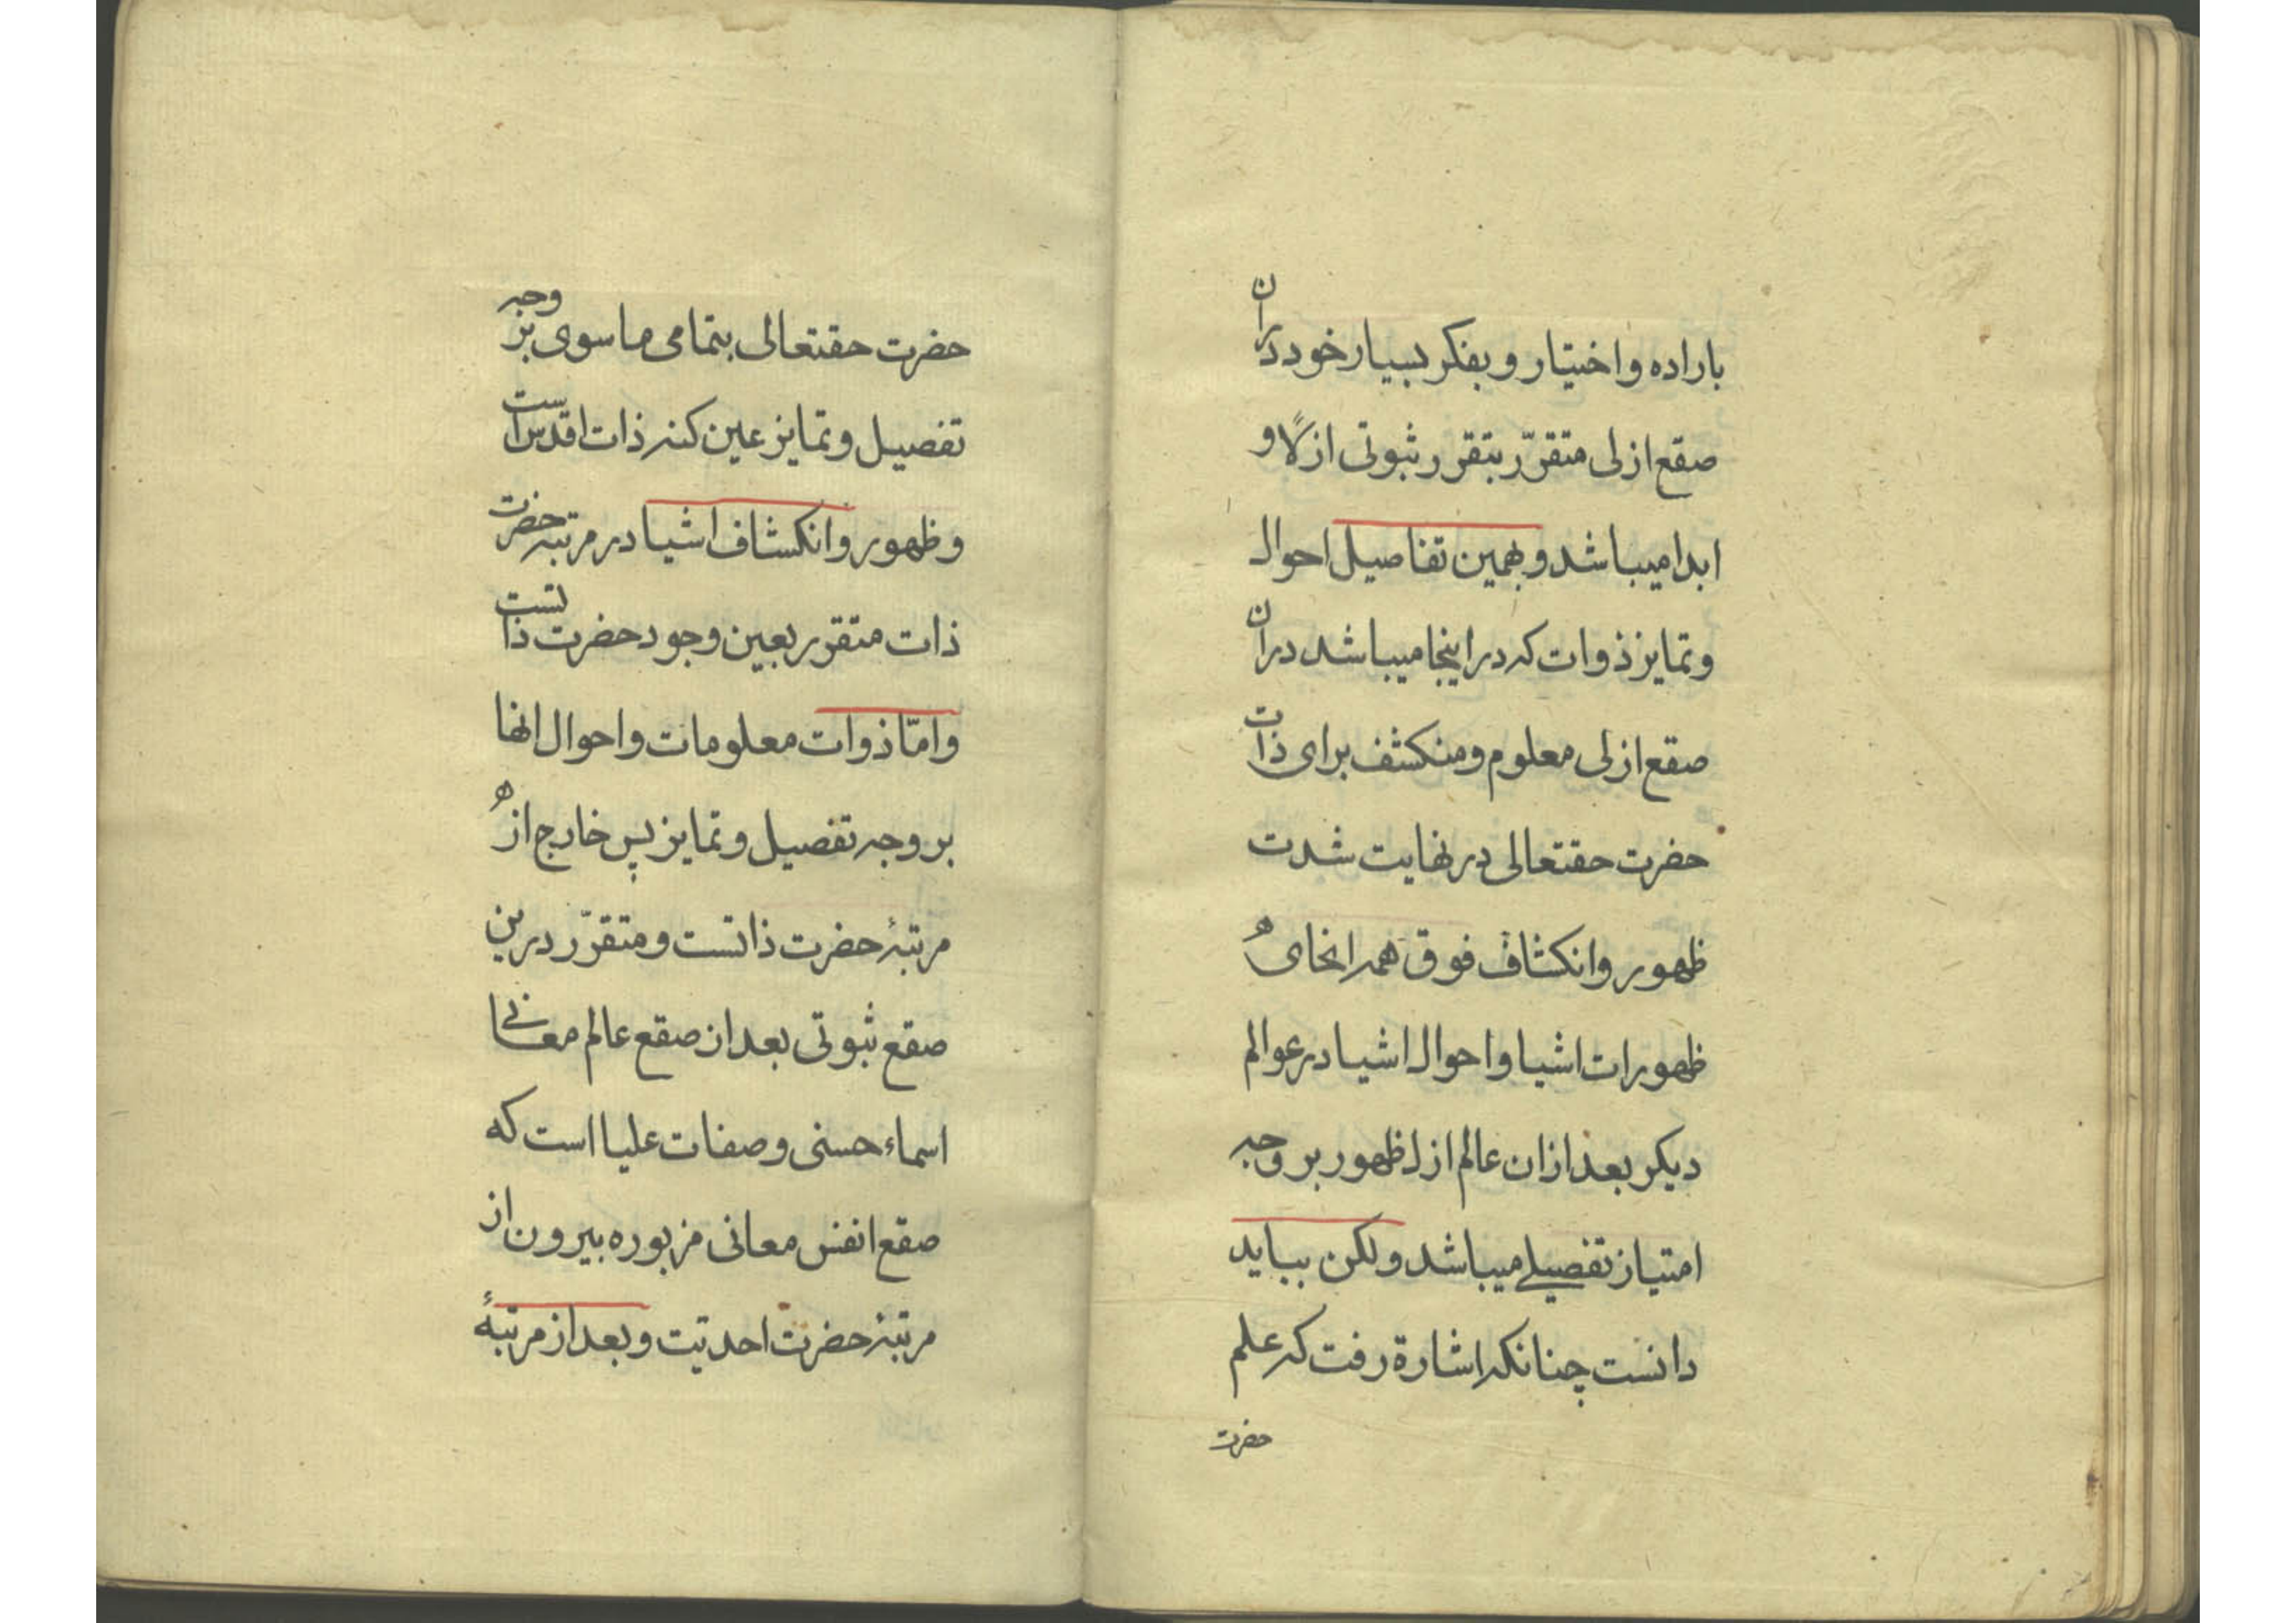 باراده واختیار و بفکر بسیار خود دران
صقع ازلی متقرّر بتقرر ثبوتی ازلًا و
ابدا میباشد و بهمین تفاصیل احوال
و تمایز ذوات که در اینجا میباشد دران
صقع ازلی معلوم و منکشف برای ذات
حضرت حقتعالی در نهایت شدت
ظهور و انکشاف فوق همه انحای
ظهورات اشیا و احوال اشیا در عوالم
دیکر بعد ازان عالم ازل ظهور بر وجه
امتیاز تفصیلے میباشد ولکن بباید
دانست چنانکه اشارة رفت که علم
حضرت
حضرت حقتعالی بتمامی ماسوی بر وجه
تفصیل و تمایز عین کنه ذات اقدس است
و ظهور و انکشاف اشیا در مرتبه حضرت
ذات متقرر بعین وجود حضرت ذاتست
و امّا ذوات معلومات و احوال انها
بر وجه تفصیل و تمایز پس خارج از
مرتبهٔ حضرت ذاتست و متقرّر درین
صقع ثبوتی بعد از صقع عالم معانے
اسماء حسنی و صفات علیا است که
صقع انفس معانی مزبوره بیرون از
مرتبهٔ حضرت احدیت و بعد از مرتبهٔ